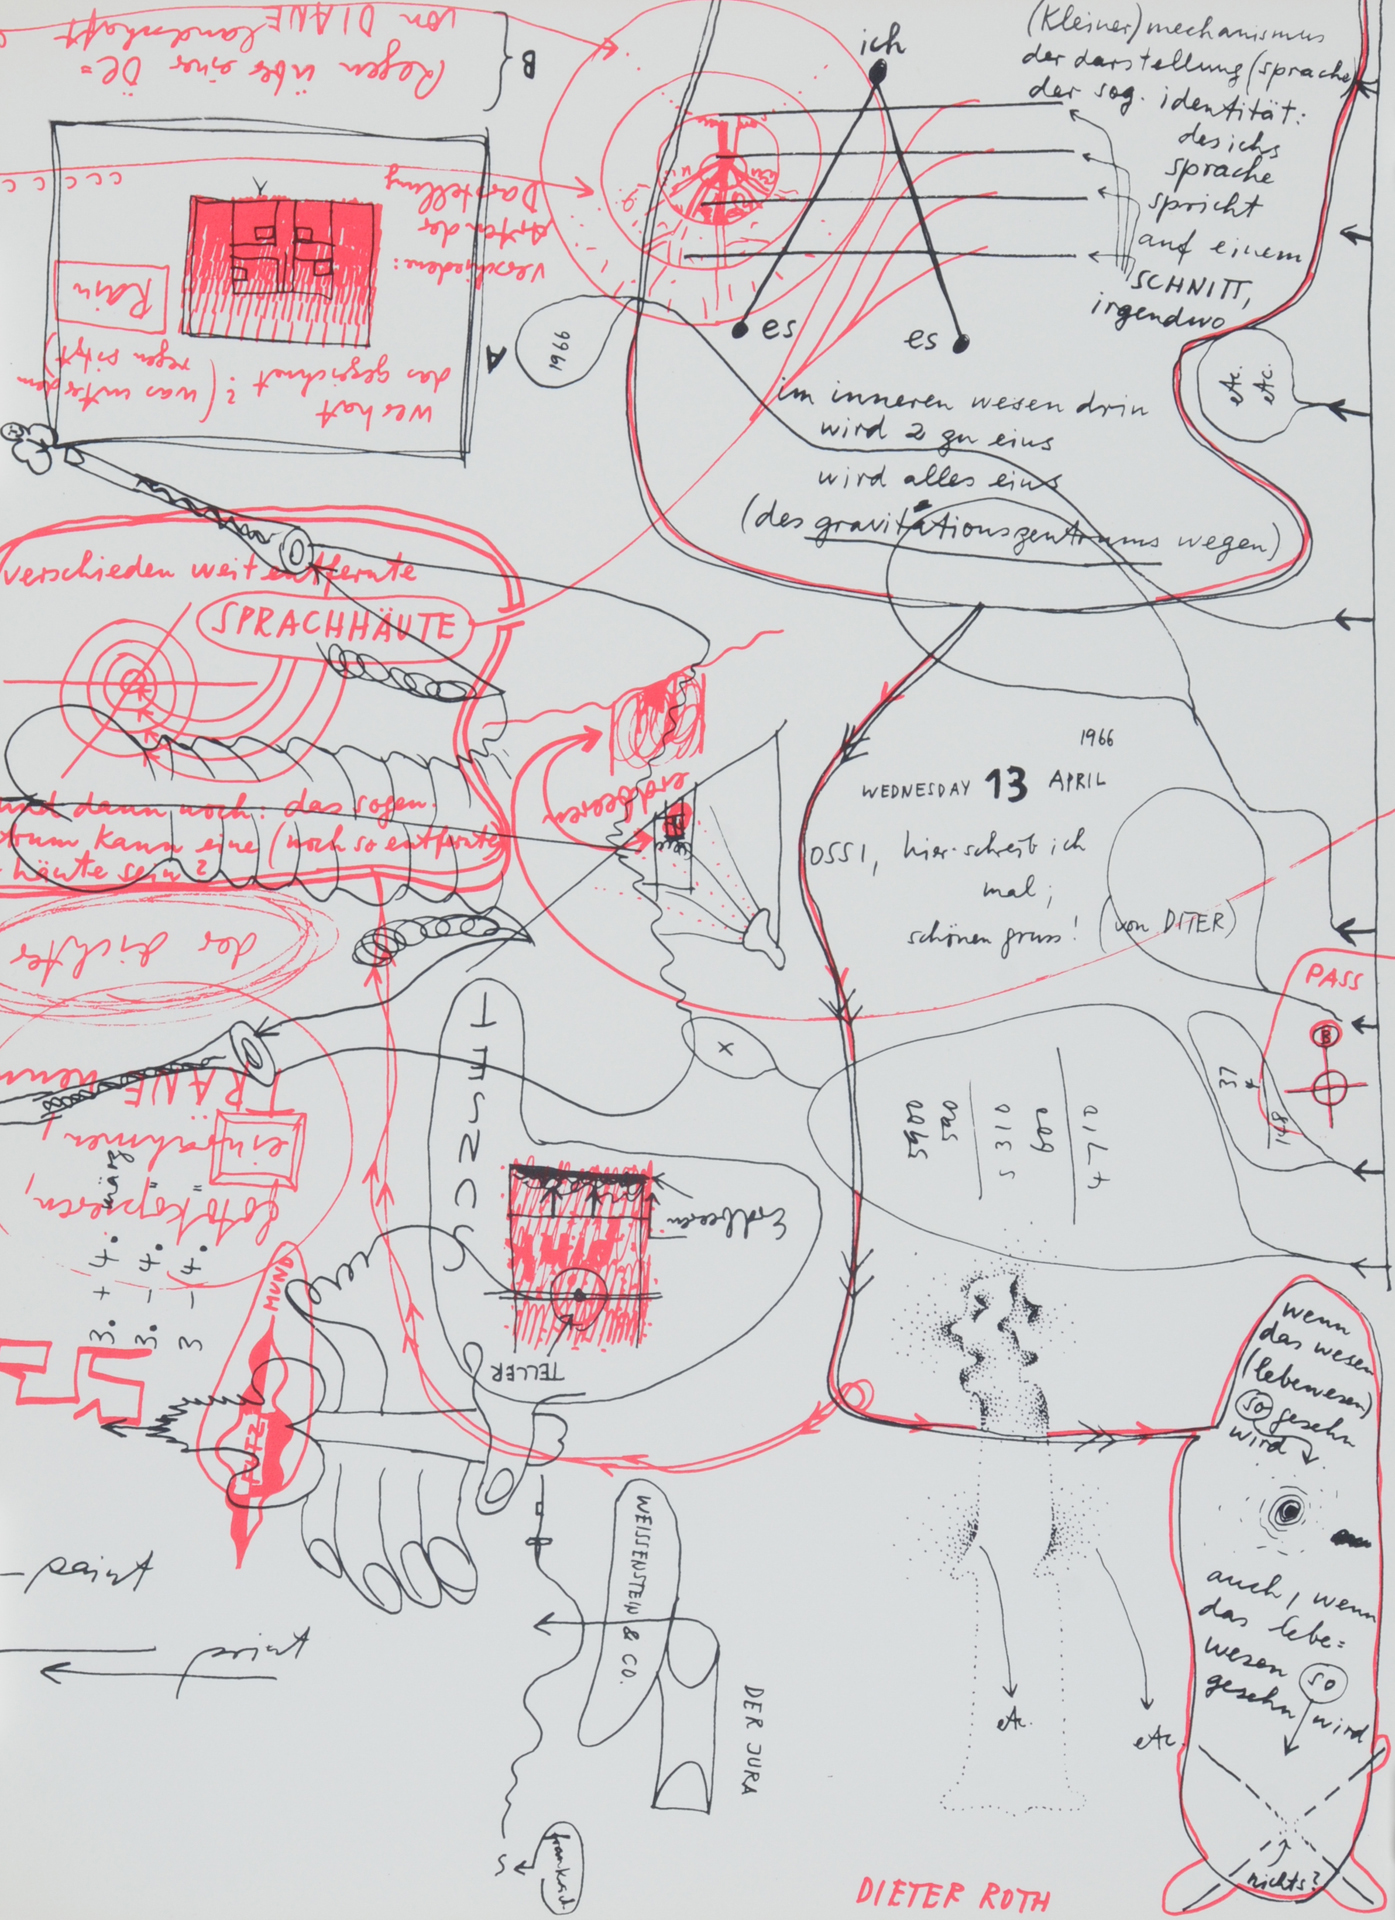 Regen über einer DE=
von DIANE landschaft
B
verschiedene:
Arten der
Darstellung
c c c c c c c
wer hat
das gezeichnet? (was unter dem
regen sitzt)
Rain
A
1966
ich
es
es
(Kleiner) mechanismus
der darstellung (sprache
der sog. identität:
des ichs
sprache
spricht
auf einem
SCHNITT,
irgendwo
etc.
etc.
im inneren wesen drin
wird 2 zu eins
wird alles eins
(des gravitationszentrums wegen)
verschieden weit entfernte
SPRACHHÄUTE
und dann noch: das sogen.
kann eine (noch so entfernte
häute sein?
erdbeeren
1966
WEDNESDAY 13 APRIL
OSSI, hier schreib ich
mal;
schönen gruss!
(von DITER)
PASS
B
37
148
der dichter
RANE
einrahmen,
fotokopieren,
märz
3. + 4.
3. - 4.
3 - 4.
MUND
PUTZ
X
Erdbeeren
TELLER
5310
609
4710
WEISSENSTEIN & CO.
DER JURA
paint
print
etc.
etc.
wenn
das wesen
(lebewesen)
so gesehn
wird
auch, wenn
das lebe=
wesen so
gesehn wird
nichts?
DIETER ROTH